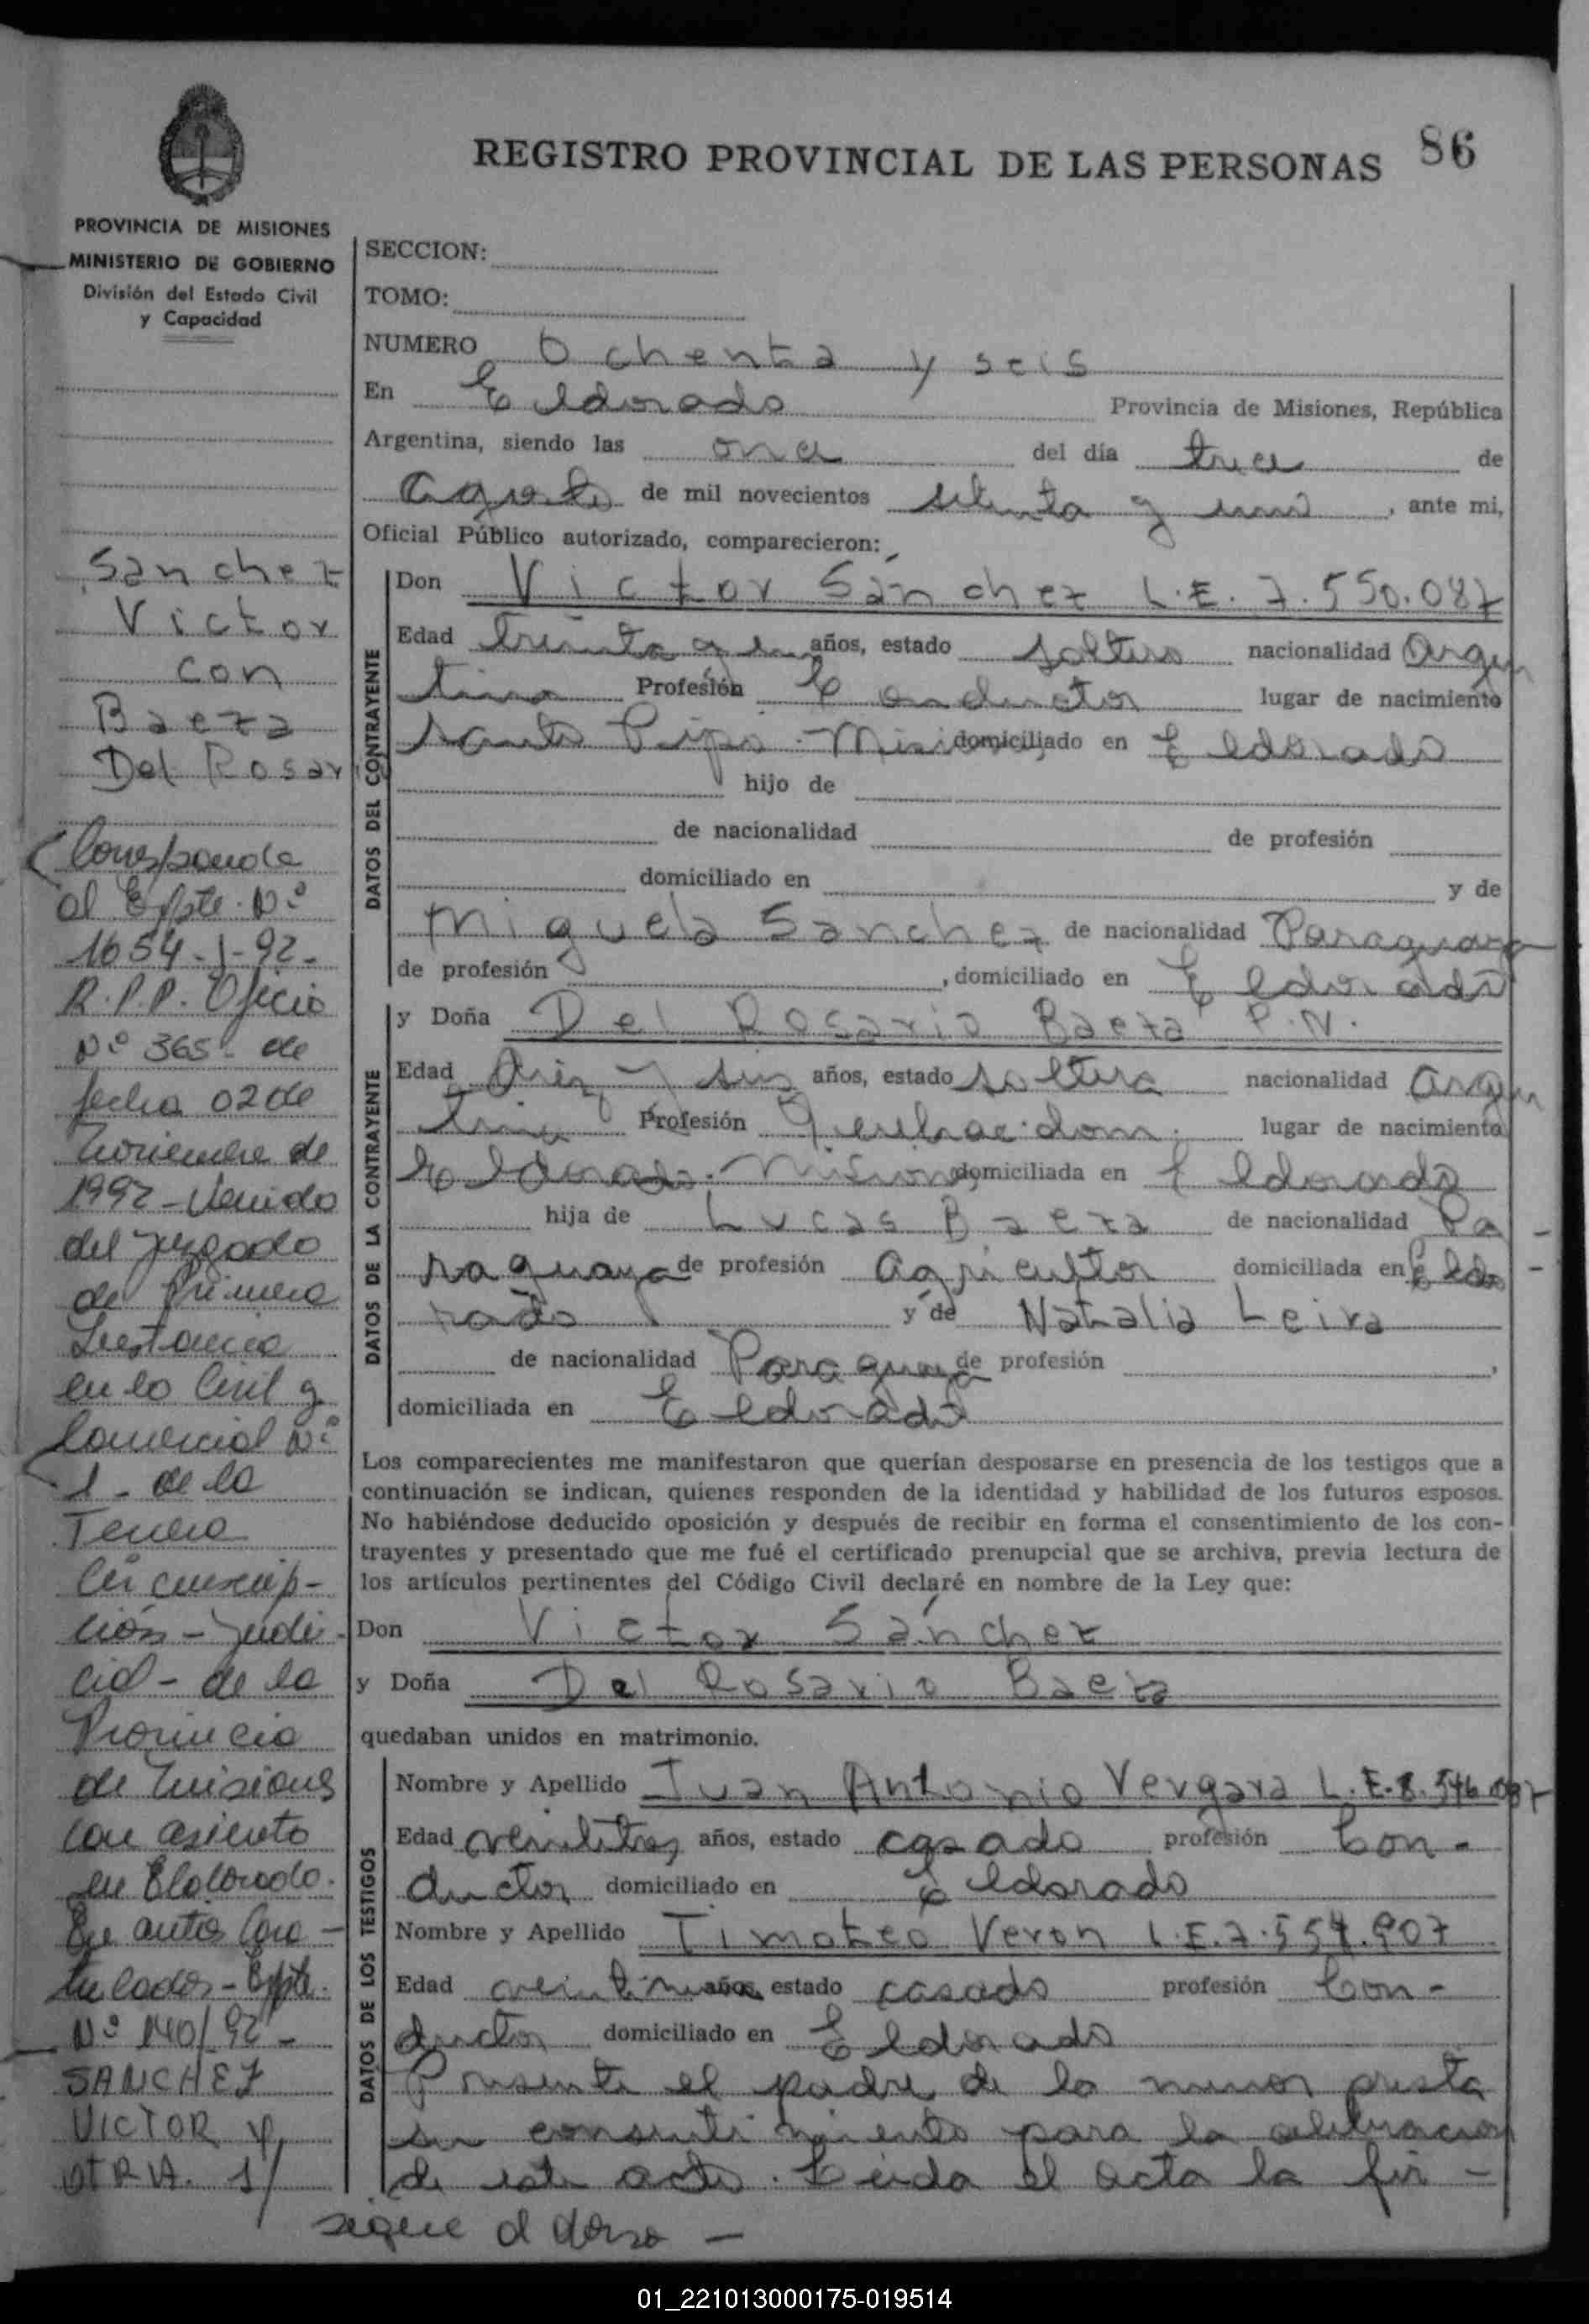 86
REGISTRO PROVINCIAL DE LAS PERSONAS
PROVINCIA DE MISIONES
MINISTERIO DE GOBIERNO
División del Estado Civil
y Capacidad
Sanchez
Victor
con
Baeza
Del Rosario
Corresponde
al Expte. Nº
1654-J-92-
R.P.P. Oficio
Nº 365- de
fecha 02 de
Noviembre de
1992 - Venido
del Juzgado
de Primera
Instancia
en lo Civil y
Comercial Nº
1 - de la
Tercera
Circunscrip-
ción - Judi-
cial - de la
Provincia
de Misiones
con asiento
en Eldorado.
En autos Cara-
tulados - Expte.
Nº 140/92 -
SANCHEZ
VICTOR y
OTRA. S/
SECCION:
TOMO:
NUMERO Ochenta y seis
En Eldorado Provincia de Misiones, República
Argentina, siendo las once del día trece de
Agosto de mil novecientos setenta y uno, ante mi,
Oficial Público autorizado, comparecieron:
DATOS DEL CONTRAYENTE
Don Victor Sánchez L.E. 7.550.087
Edad treinta y un años, estado soltero nacionalidad Argen
tina Profesión Conductor lugar de nacimiento
Santo Pipó - Misiones domiciliado en Eldorado
hijo de
de nacionalidad de profesión
domiciliado en y de
Miguela Sanchez de nacionalidad Paraguaya
de profesión , domiciliado en Eldorado
DATOS DE LA CONTRAYENTE
y Doña Del Rosario Baeza P.N.
Edad Diez y seis años, estado soltera nacionalidad Argen
tina Profesión Quehac. dom. lugar de nacimiento
Eldorado - Misiones domiciliada en Eldorado
hija de Lucas Baeza de nacionalidad Pa-
raguaya de profesión Agricultor domiciliada en Eldo-
rado y de Natalia Leiva
de nacionalidad Paraguaya de profesión ,
domiciliada en Eldorado
Los comparecientes me manifestaron que querían desposarse en presencia de los testigos que a
continuación se indican, quienes responden de la identidad y habilidad de los futuros esposos.
No habiéndose deducido oposición y después de recibir en forma el consentimiento de los con-
trayentes y presentado que me fué el certificado prenupcial que se archiva, previa lectura de
los artículos pertinentes del Código Civil declaré en nombre de la Ley que:
Don Victor Sánchez
y Doña Del Rosario Baeza
quedaban unidos en matrimonio.
DATOS DE LOS TESTIGOS
Nombre y Apellido Juan Antonio Vergara L.E. 8.546.087
Edad veintitres años, estado casado profesión Con-
ductor domiciliado en Eldorado
Nombre y Apellido Timoteo Veron L.E. 7.554.907
Edad años, estado casado profesión Con-
ductor domiciliado en Eldorado
Presente el padre de la menor presta
su consentimiento para la celebracion
de este acto. Leida el acta la fir-
sigue al dorso -
01_221013000175-019514